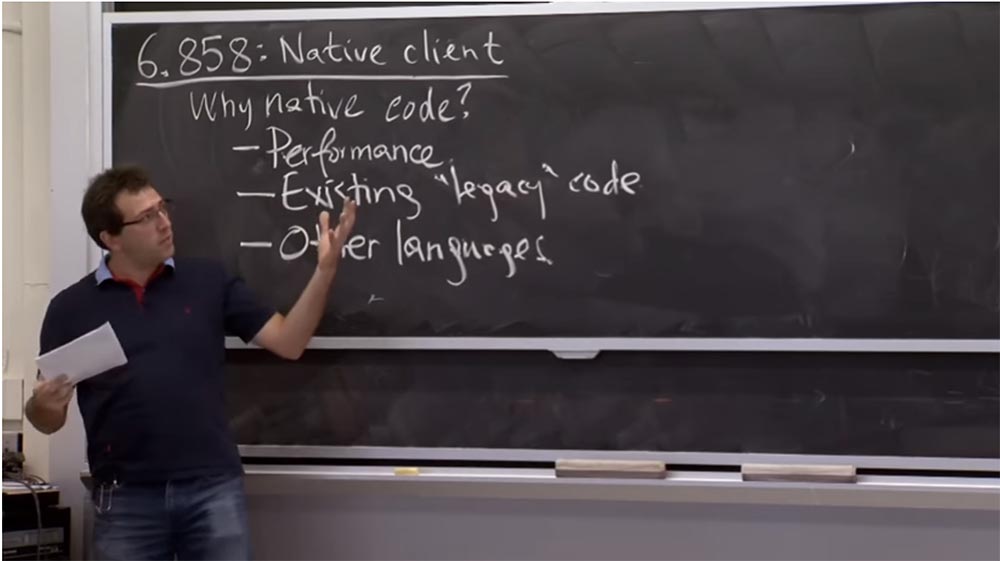 6.858: Native client
Why native code?
– Performance
– Existing "legacy" code
– Other languages